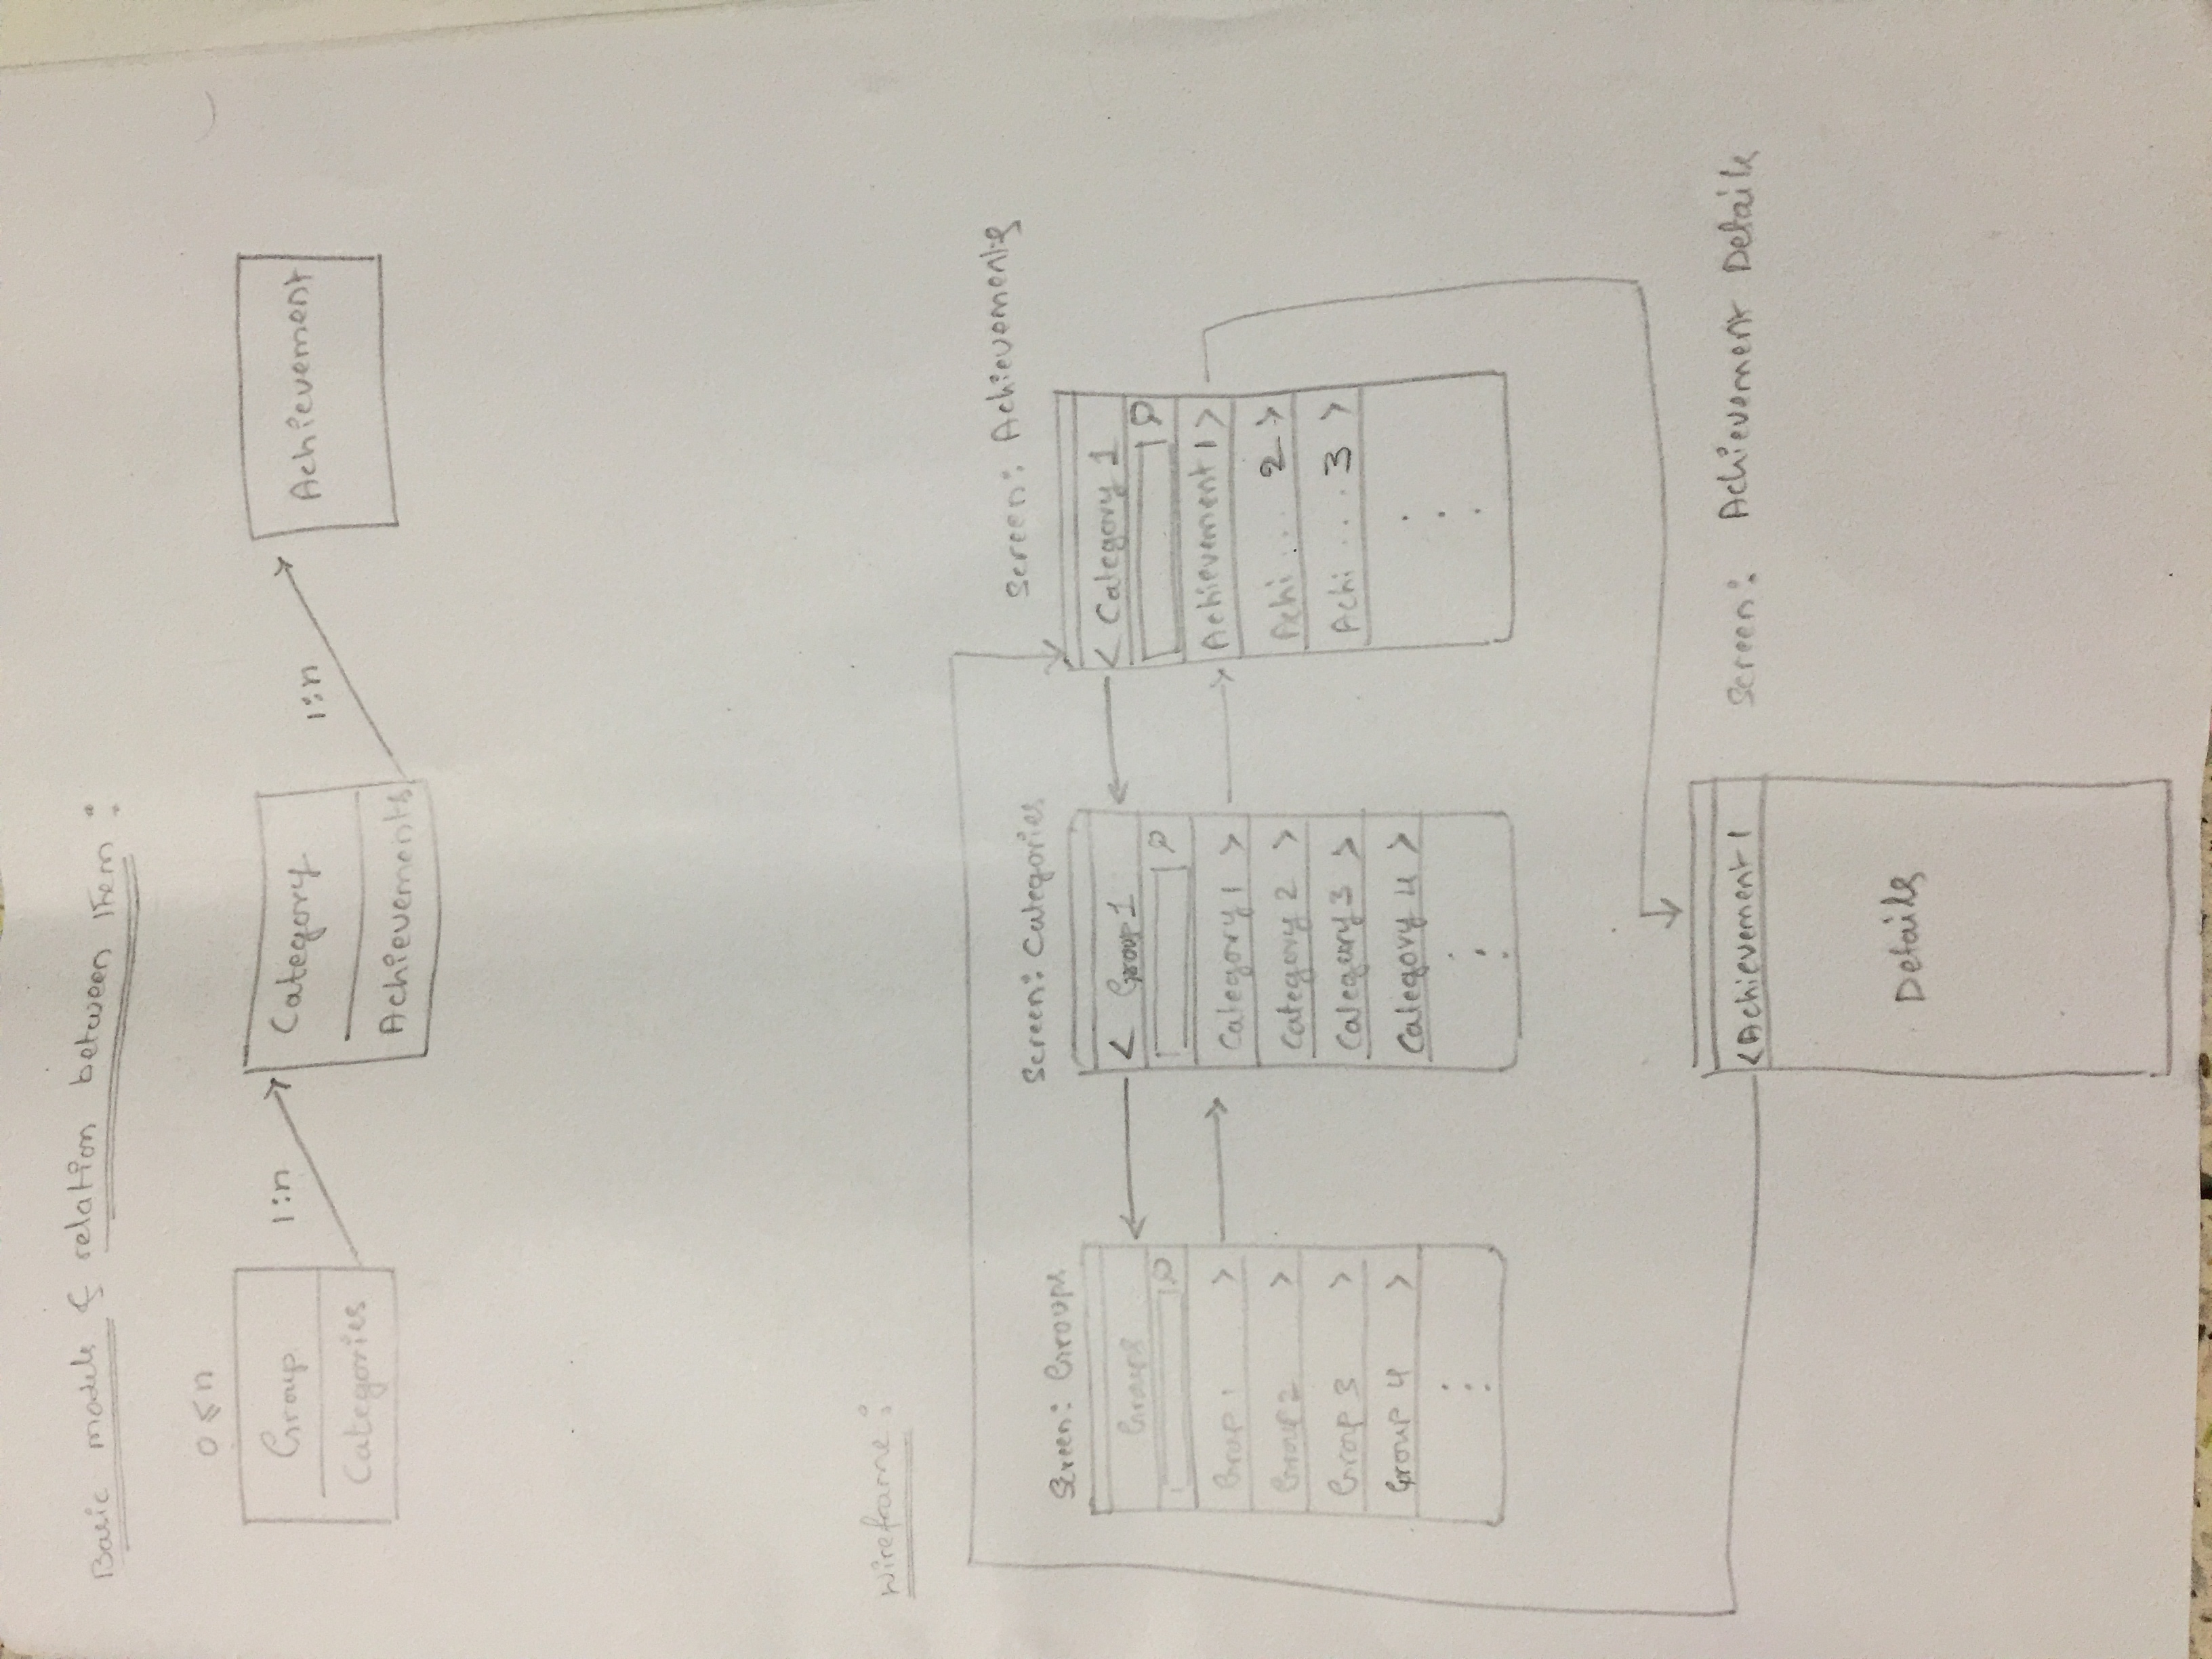 Basic models & relation between them :
0 ≤ n
Group
Categories
1:n
Category
Achievements
1:n
Achievement
Wireframe :
Screen: Groups
Groups
Group 1 >
Group 2 >
Group 3 >
Group 4 >
Screen: Categories
< Group 1
Category 1 >
Category 2 >
Category 3 >
Category 4 >
Screen: Achievements
< Category 1
Achievement 1 >
Achi ... 2 >
Achi ... 3 >
< Achievement 1
Details
Screen: Achievement Details